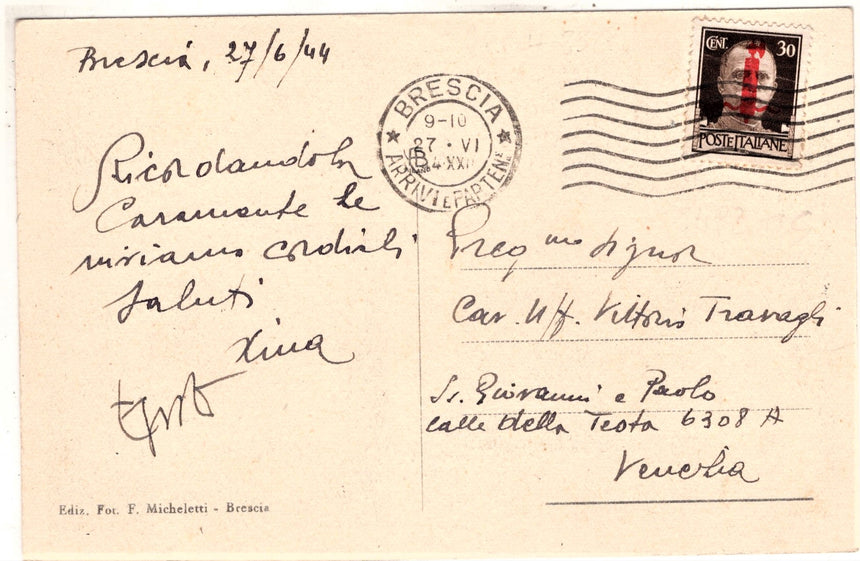 Brescia, 27/6/44
Ricordandola
Caramente le
inviamo cordiali
saluti
Xina
Ediz. Fot. F. Micheletti - Brescia
BRESCIA
9-10
27 • VI
ARRIVI E PARTENZE
CENT. 30
POSTE ITALIANE
Preg mo Signor
Cav. Uff. Vittorio Travagli
Ss. Giovanni e Paolo
Calle della Testa 6308 A
Venezia